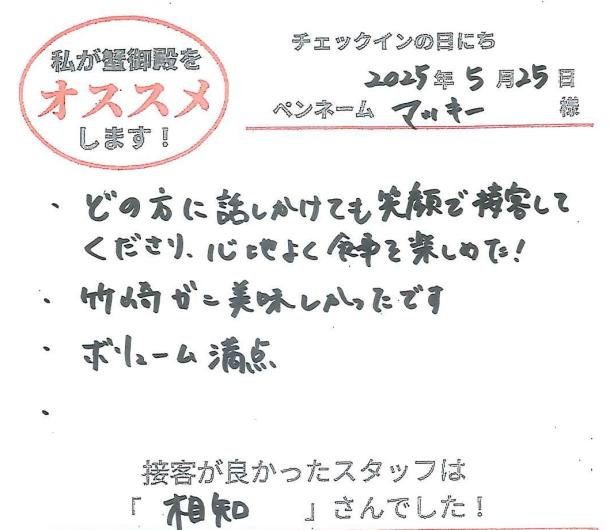 私が蟹御殿を
オススメ
します！
チェックインの日にち
2025年5月25日
ペンネーム マッキー 様
・どの方に話しかけても笑顔で接客して
くださり、心地よく食事を楽しめた！
・竹崎ガニ美味しかったです
・ボリューム満点
・
接客が良かったスタッフは
「相知」さんでした！